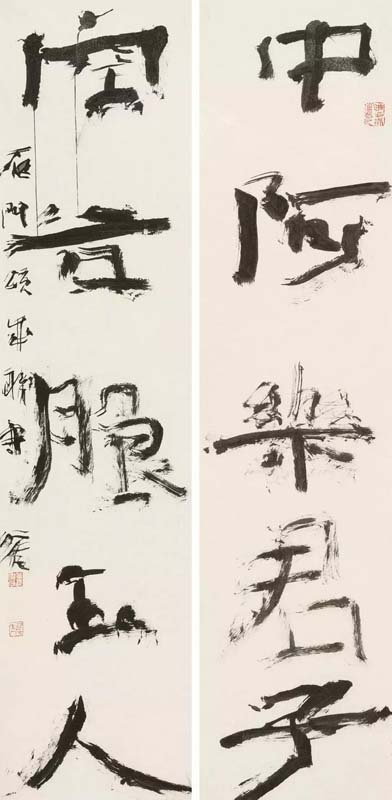 中阿樂君子
空谷服玉人
石門頌集聯